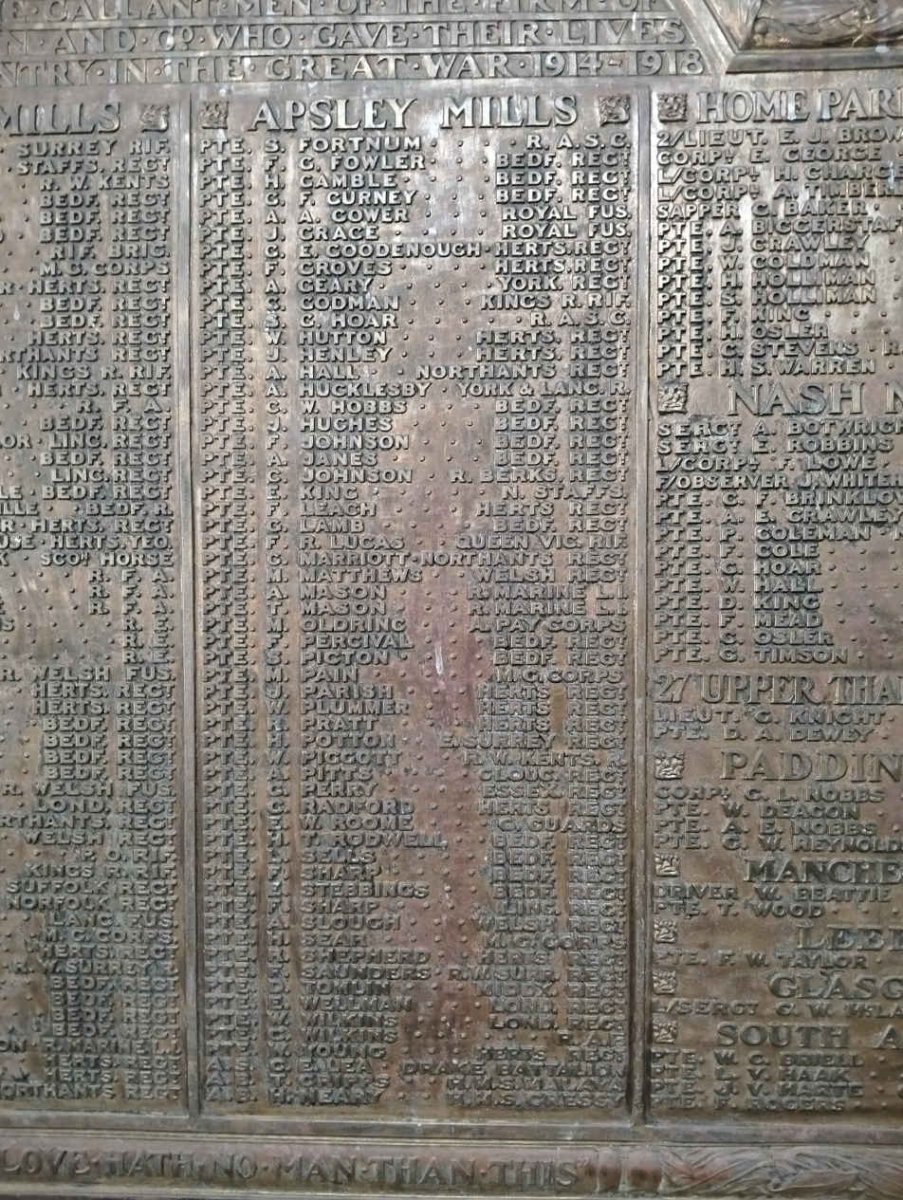 GALLANT MEN OF THE FIRM OF
AND CO. WHO GAVE THEIR LIVES
NTRY IN THE GREAT WAR 1914-1918
MILLS
SURREY RIF.
STAFFS. REGT
R. W. KENTS
BEDF. REGT
BEDF. REGT
BEDF. REGT
RIF. BRIG.
M. G. CORPS
HERTS. REGT
BEDF. REGT
BEDF. REGT
HERTS. REGT
RTHANTS REGT
KINGS R. RIF.
HERTS. REGT
R. F. A.
BEDF. REGT
LINC. REGT
BEDF. REGT
LINC. REGT
BEDF. REGT
BEDF. R.
HERTS. REGT
HERTS. YEO.
SCOH HORSE
R. F. A.
R. F. A.
R. F. A.
R. E.
R. E.
R. E.
R. WELSH FUS.
HERTS. REGT
HERTS. REGT
BEDF. REGT
BEDF. REGT
BEDF. REGT
BEDF. REGT
R. WELSH FUS.
LOND. REGT
RTHANTS. REGT
WELSH REGT
P. O. RIF.
KINGS R. RIF.
SUFFOLK REGT
NORFOLK REGT
LANC. FUS.
M. G. CORPS
HERTS. REGT
R. W. SURREY R.
BEDF. REGT
BEDF. REGT
BEDF. REGT
BEDF. REGT
R. MARINE L.I.
HERTS. REGT
HERTS. REGT
NORTHANTS REGT
APSLEY MILLS
PTE. S. FORTNUM R. A. S. C.
PTE. F. G. FOWLER BEDF. REGT
PTE. H. GAMBLE BEDF. REGT
PTE. C. F. GURNEY BEDF. REGT
PTE. A. A. GOWER ROYAL FUS.
PTE. J. GRACE ROYAL FUS.
PTE. C. E. GOODENOUGH HERTS. REGT
PTE. F. GROVES HERTS. REGT
PTE. A. GEARY YORK. REGT
PTE. C. GODMAN KINGS R. RIF.
PTE. S. G. HOAR R. A. S. C.
PTE. W. HUTTON HERTS. REGT
PTE. J. HENLEY HERTS. REGT
PTE. A. HALL NORTHANTS REGT
PTE. A. HUCKLESBY YORK & LANC. R.
PTE. C. W. HOBBS BEDF. REGT
PTE. J. HUGHES BEDF. REGT
PTE. F. JOHNSON BEDF. REGT
PTE. A. JANES BEDF. REGT
PTE. C. JOHNSON R. BERKS. REGT
PTE. E. KING N. STAFFS.
PTE. F. LEACH HERTS REGT
PTE. G. LAMB BEDF. REGT
PTE. F. R. LUCAS QUEEN VIC. RIF.
PTE. G. MARRIOTT NORTHANTS REGT
PTE. M. MATTHEWS WELSH REGT
PTE. A. MASON R. MARINE L. I.
PTE. T. MASON R. MARINE L. I.
PTE. M. OLDRING A. PAY CORPS
PTE. F. PERCIVAL BEDF. REGT
PTE. S. PICTON BEDF. REGT
PTE. M. PAIN M. G. CORPS
PTE. J. PARISH HERTS REGT
PTE. W. PLUMMER HERTS REGT
PTE. R. PRATT HERTS REGT
PTE. H. POTTON E. SURREY REGT
PTE. W. PIGGOTT R. W. KENTS. R.
PTE. A. PITTS GLOUC. REGT
PTE. G. PERRY ESSEX. REGT
PTE. C. RADFORD HERTS. REGT
PTE. E. W. ROOME G. GUARDS
PTE. H. T. RODWELL BEDF. REGT
PTE. L. SEARS BEDF. REGT
PTE. F. SHARP BEDF. REGT
PTE. E. STEBBINGS BEDF. REGT
PTE. F. SHARP LINC. REGT
PTE. A. SLOUGH WELSH REGT
PTE. H. SEAR M. G. CORPS
PTE. R. SHEPHERD HERTS REGT
PTE. K. SAUNDERS R. W. SURR. REGT
PTE. D. TOMLIN MIDLX. REGT
PTE. E. WELLMAN LOND. REGT
PTE. V. WILKINS LOND. REGT
WILKINS R. A. F.
YOUNG HERTS REGT
C. EALEA DRAKE BATTALION
T. CRIPPS H. M. S. MALAYA
H. NEARY H. M. S. CRESSY
HOME PAR
2/LIEUT. E. J. BROW
CORPL E. GEORGE
L/CORPL H. CHARGE
L/CORPL A. TIMBER
SAPPER C. BAKER
PTE. A. BIGGERSTAF
PTE. J. CRAWLEY
PTE. W. GOLDMAN
PTE. H. HOLLIMAN
PTE. S. HOLLIMAN
PTE. F. KING
PTE. H. OSLER
PTE. C. STEVENS
PTE. H. S. WARREN
NASH
SERGT A. BOTWRIGH
SERGT E. ROBBINS
L/CORPL F. LOWE
F/OBSERVER J. WHITER
PTE. C. F. BRINKLOW
PTE. A. E. CRAWLEY
PTE. P. COLEMAN
PTE. F. COLE
PTE. G. HOAR
PTE. W. HALL
PTE. D. KING
PTE. F. MEAD
PTE. G. OSLER
PTE. G. TIMSON
27 UPPER THA
LIEUT. G. KNIGHT
PTE. D. A. DEWEY
PADDIN
CORPL C. L. NOBBS
PTE. W. DEACON
PTE. A. E. NOBBS
PTE. G. W. REYNOLD
MANCHE
DRIVER W. BEATTIE
PTE. T. WOOD
LEE
PTE. F. W. TAYLOR
GLASG
L/SERGT G. W. ISLA
SOUTH A
PTE. W. G. BRIELL
PTE. L. V. HAAK
PTE. J. V. HARTE
PTE. F. ROGERS
LOVE HATH NO MAN THAN THIS